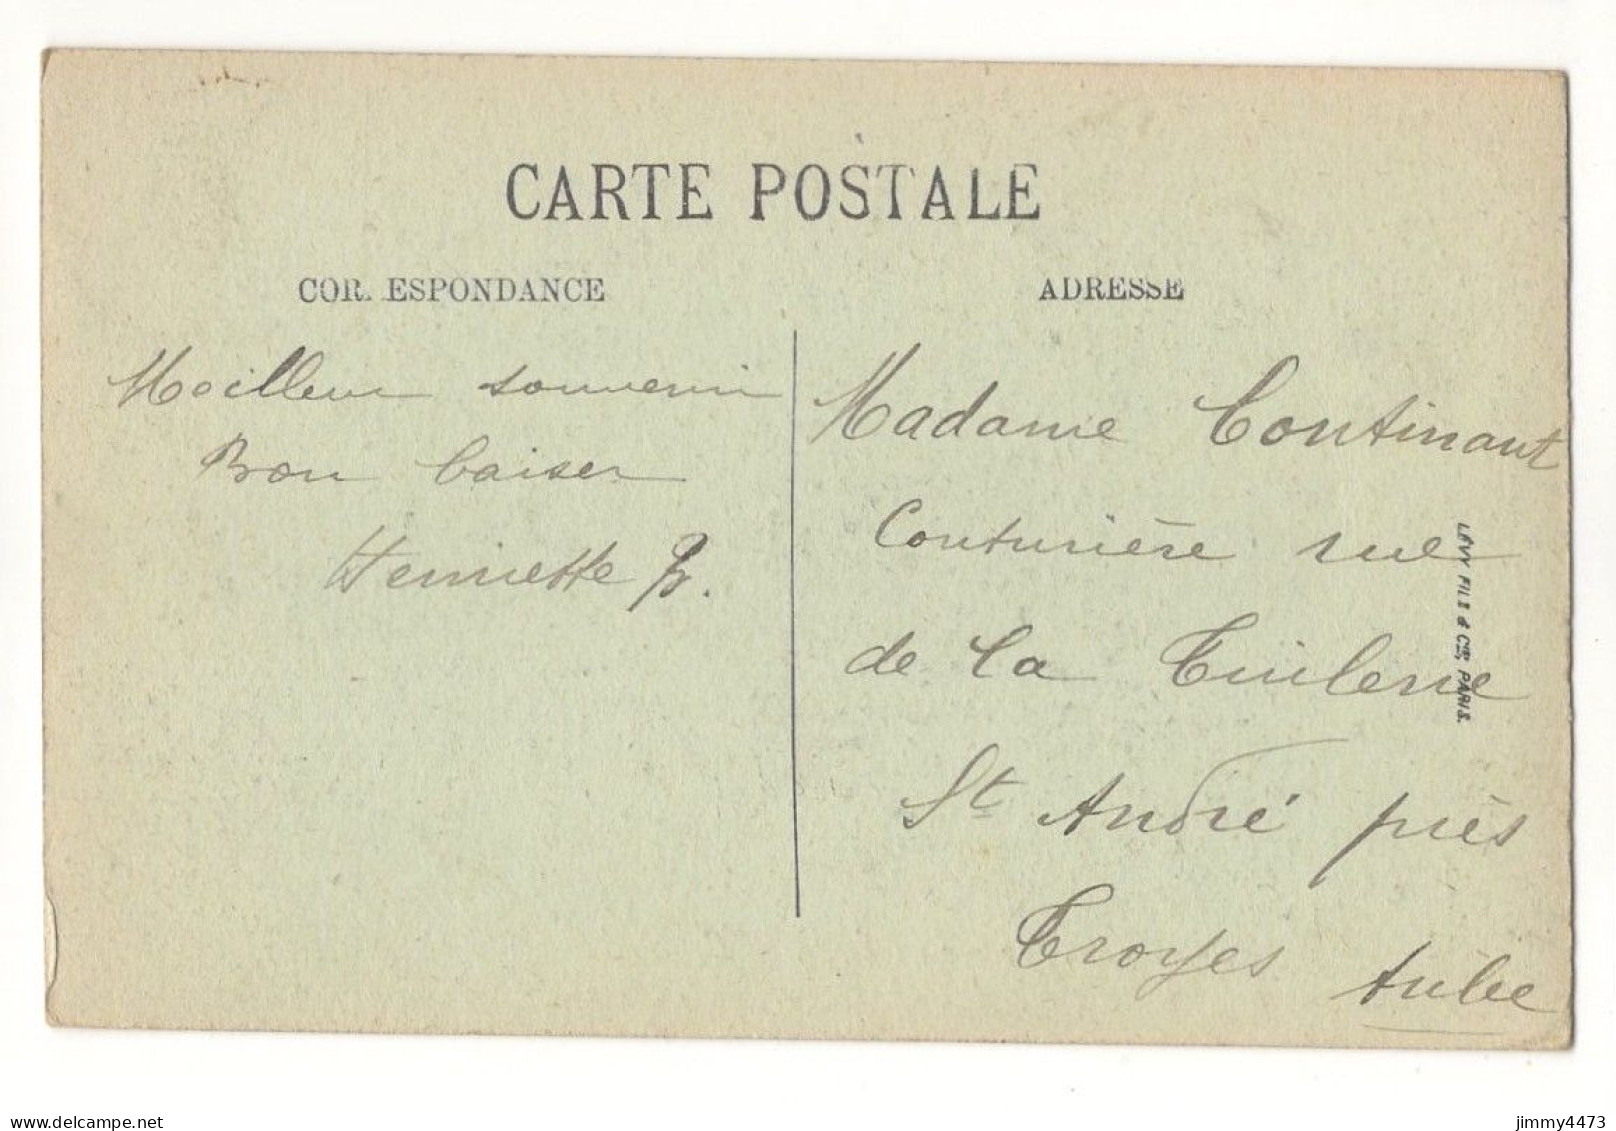 CARTE POSTALE
CORRESPONDANCE
Meilleur souvenir
Bon baiser
Henriette B.
ADRESSE
Madame Continant
Couturière rue
de la Tuilerie
St André près
Troyes Aube
LÉVY FILS & Cie, PARIS.
www.delcampe.net
jimmy4473